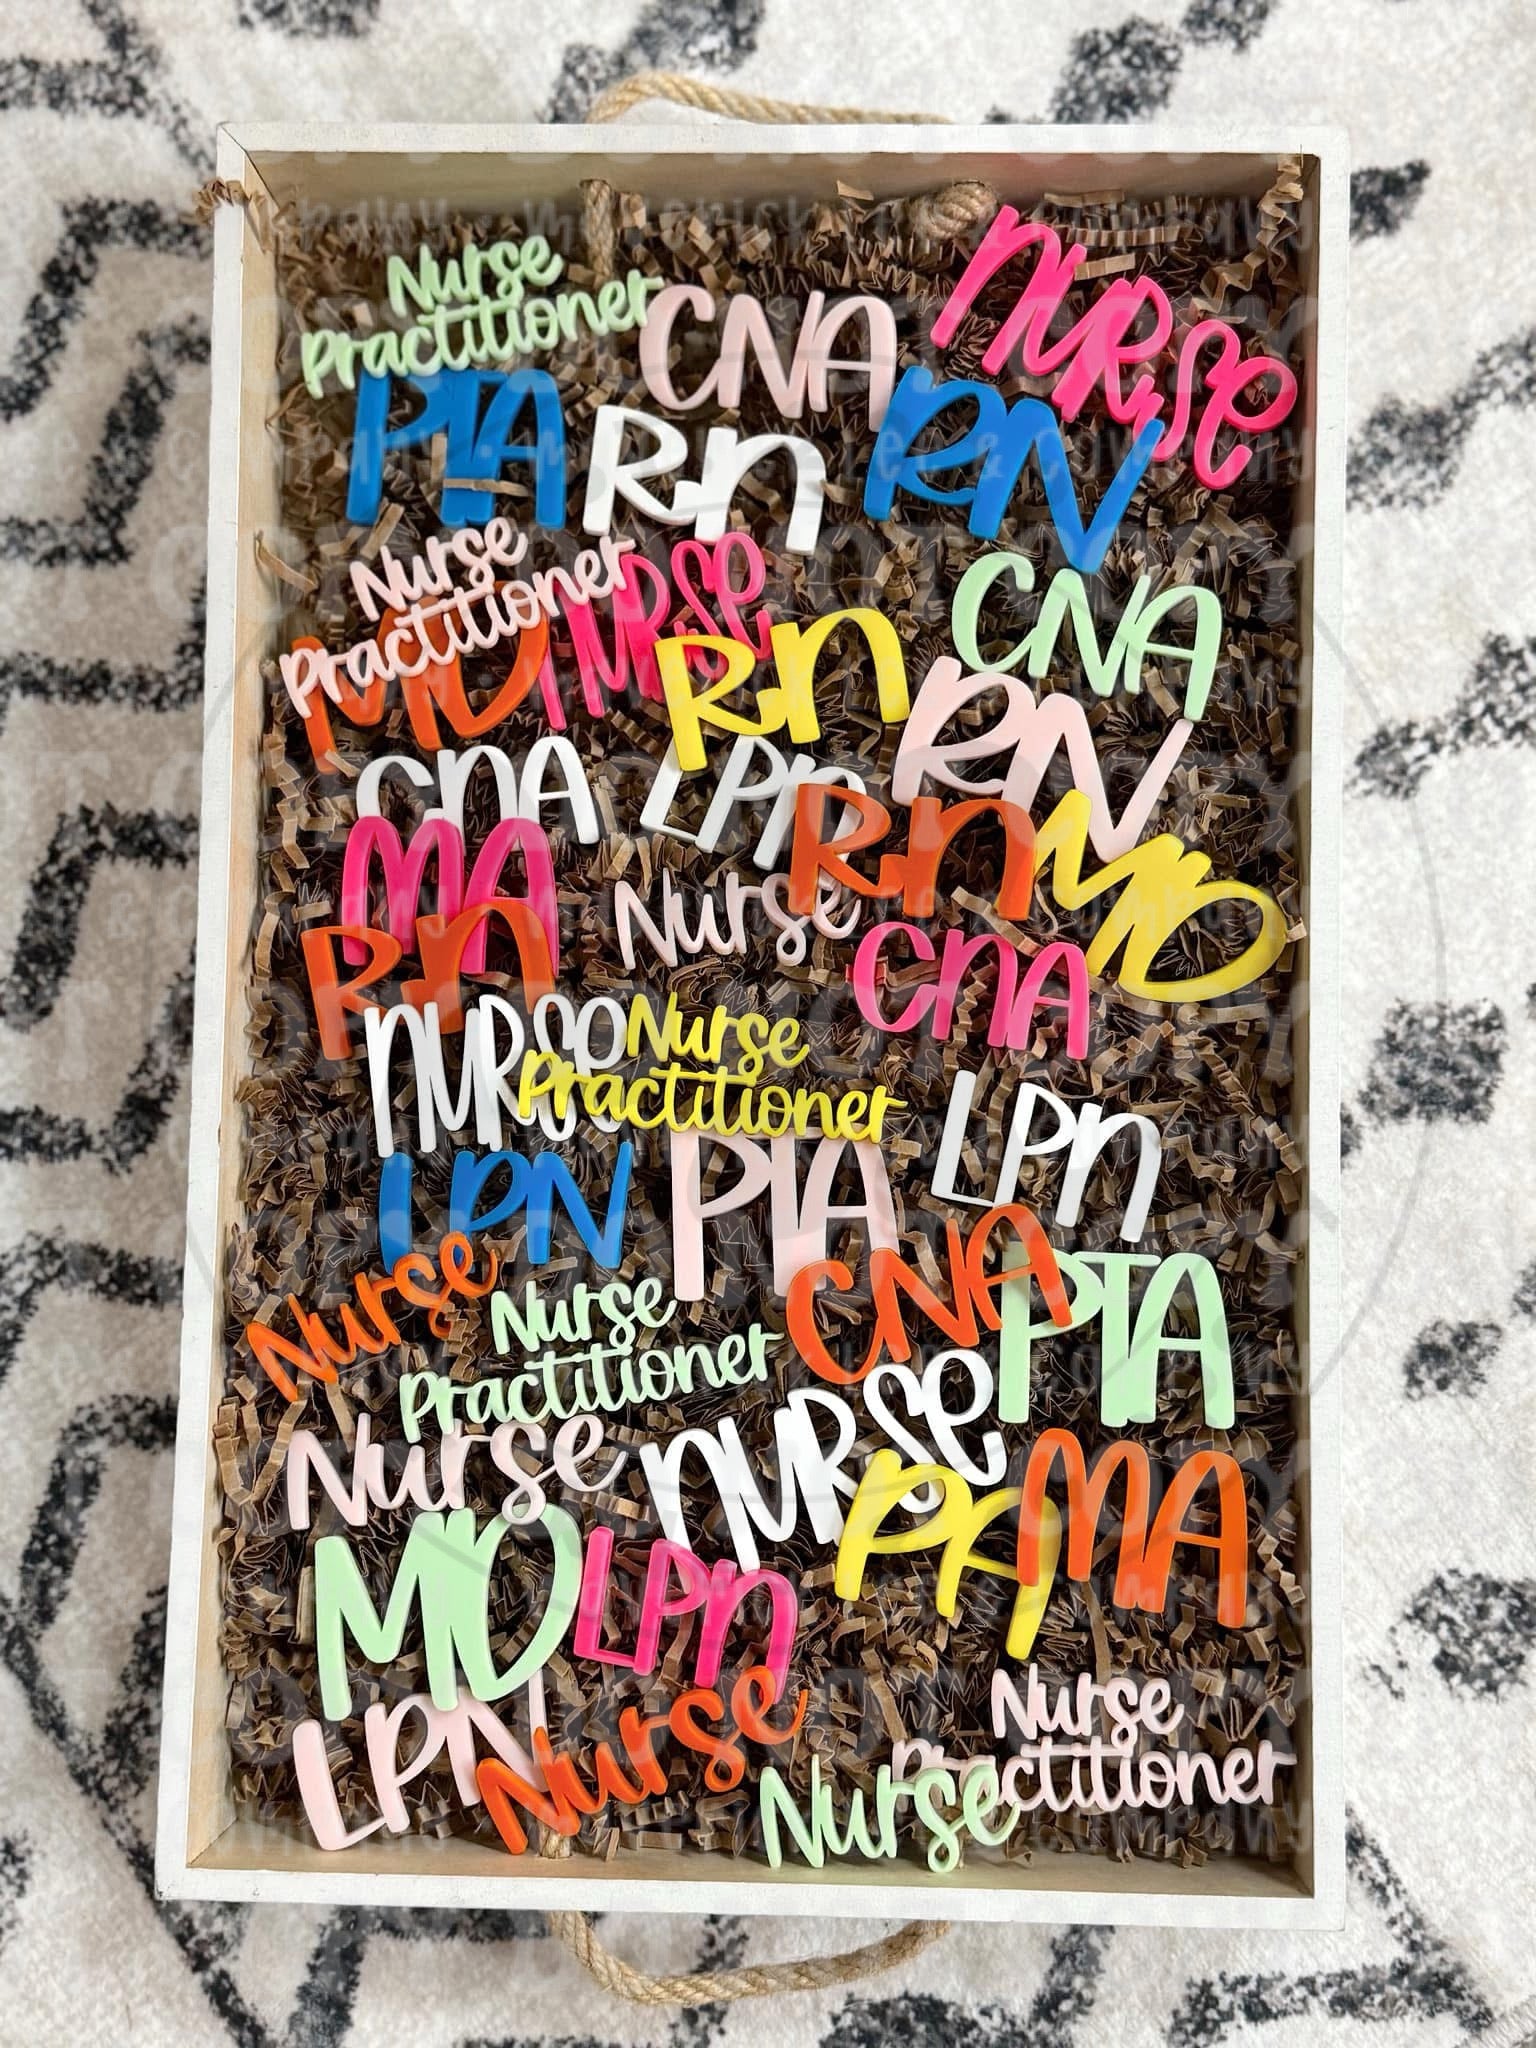 Nurse
Practitioner
CNA
NURSE
PTA
Rn
RN
Nurse
Practitioner
MD
NURSE
Rn
CNA
RN
CNA
LPN
Rn
MD
MA
Nurse
Rn
CNA
NURSE
Nurse
Practitioner
LPN
LPN
PTA
Nurse
CNA
PTA
Nurse
Practitioner
Nurse
NURSE
PA
MA
MD
LPN
LPN
Nurse
Nurse
Practitioner
Nurse